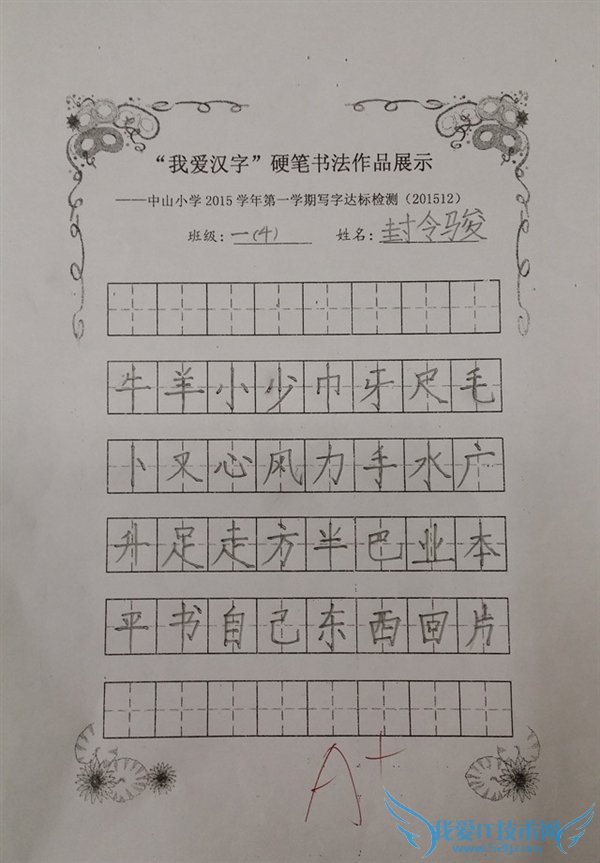 “我爱汉字”硬笔书法作品展示
——中山小学2015学年第一学期写字达标检测（201512）
班级：一(4) 姓名：封令骏
牛羊小少巾牙尺毛
卜又心风力手水广
升足走方半巴业本
平书自己东西回片
A+
我爱IT技术网